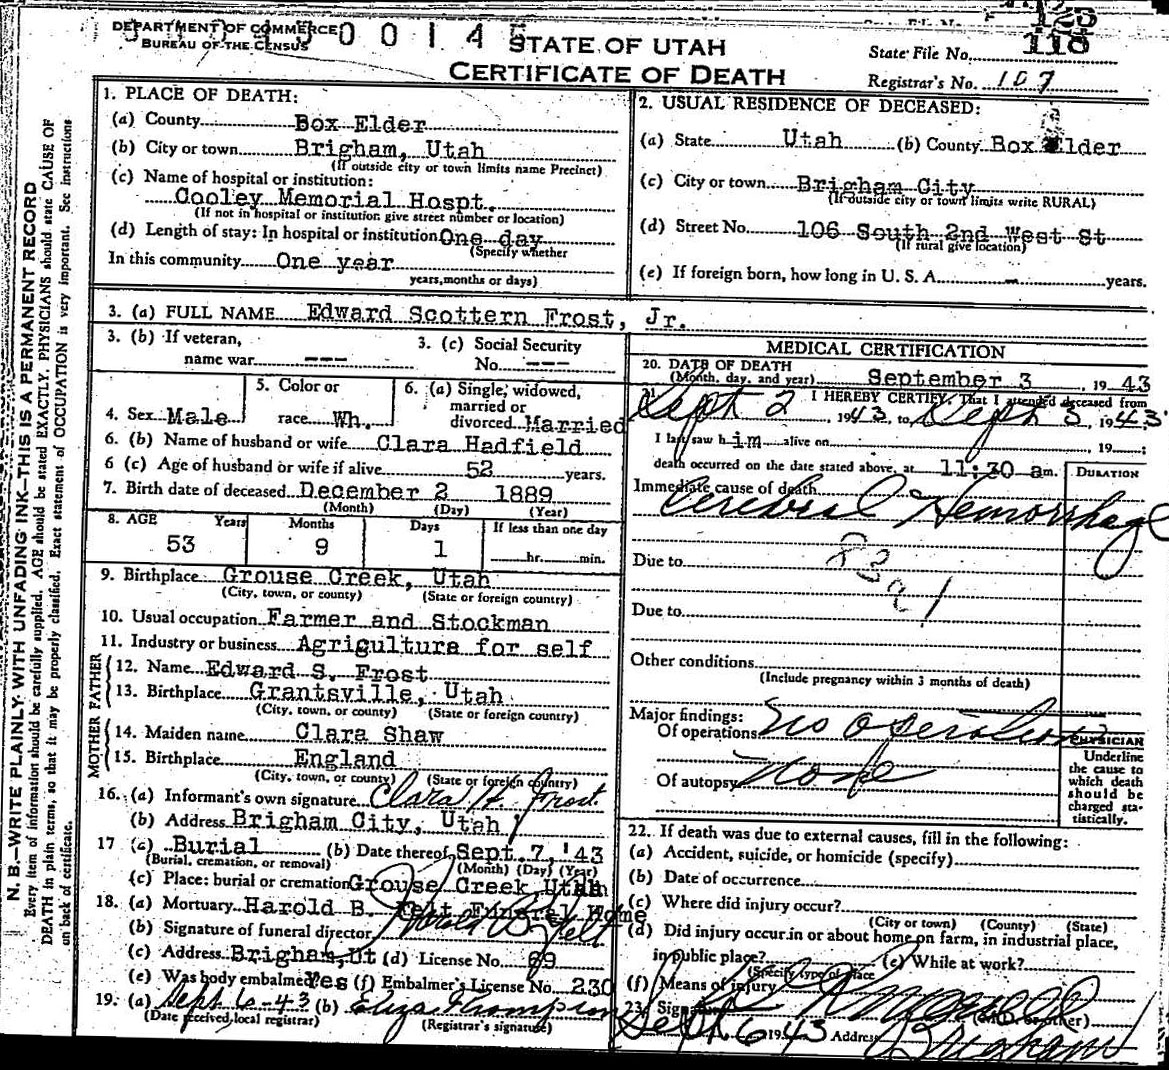 DEPARTMENT OF COMMERCE
BUREAU OF THE CENSUS
0 0 1 4 5
STATE OF UTAH
CERTIFICATE OF DEATH
125
State File No. 118
Registrar's No. 107
N. B.—WRITE PLAINLY WITH UNFADING INK—THIS IS A PERMANENT RECORD
Every item of information should be carefully supplied. AGE should be stated EXACTLY. PHYSICIANS should state CAUSE OF
DEATH in plain terms, so that it may be properly classified. Exact statement of OCCUPATION is very important. See instructions
on back of certificate.
1. PLACE OF DEATH:
(a) County Box Elder
(b) City or town Brigham, Utah
(If outside city or town limits name Precinct)
(c) Name of hospital or institution:
Cooley Memorial Hospt.
(If not in hospital or institution give street number or location)
(d) Length of stay: In hospital or institution One day
(Specify whether
In this community One year
years, months or days)
2. USUAL RESIDENCE OF DECEASED:
(a) State Utah (b) County Box Elder
(c) City or town Brigham City
(If outside city or town limits write RURAL)
(d) Street No. 106 South 2nd West St
(If rural give location)
(e) If foreign born, how long in U. S. A. — years.
3. (a) FULL NAME Edward Scottern Frost, Jr.
3. (b) If veteran, name war ---
3. (c) Social Security No. ---
4. Sex Male
5. Color or race Wh.
6. (a) Single, widowed, married or divorced Married
6. (b) Name of husband or wife Clara Hadfield
6 (c) Age of husband or wife if alive 52 years.
7. Birth date of deceased December 2 1889
(Month) (Day) (Year)
8. AGE Years Months Days If less than one day
53 9 1 hr. min.
9. Birthplace Grouse Creek, Utah
(City, town, or county) (State or foreign country)
10. Usual occupation Farmer and Stockman
11. Industry or business Agriculture for self
FATHER
12. Name Edward S. Frost
13. Birthplace Grantsville, Utah
(City, town, or county) (State or foreign country)
MOTHER
14. Maiden name Clara Shaw
15. Birthplace England
(City, town, or county) (State or foreign country)
16. (a) Informant's own signature Clara H. Frost
(b) Address Brigham City, Utah
17 (a) Burial (b) Date thereof Sept. 7, '43
(Burial, cremation, or removal) (Month) (Day) (Year)
(c) Place: burial or cremation Grouse Creek, Utah
18. (a) Mortuary Harold B. Felt Funeral Home
(b) Signature of funeral director Harold B. Felt
(c) Address Brigham, Ut (d) License No. 69
(e) Was body embalmed Yes (f) Embalmer's License No. 230
19. (a) Sept 6-43 (b) Eliza Thompson
(Date received local registrar) (Registrar's signature)
MEDICAL CERTIFICATION
20. DATE OF DEATH
(Month, day, and year) September 3, 1943
21. I HEREBY CERTIFY, That I attended deceased from
Sept 2 1943, to Sept 3, 1943
I last saw him alive on 19 ;
death occurred on the date stated above, at 11:30 am.
DURATION
Immediate cause of death
Cerebral Hemorrhage
Due to
Due to
Other conditions
(Include pregnancy within 3 months of death)
Major findings:
Of operations no operation
Of autopsy none
PHYSICIAN
Underline
the cause to
which death
should be
charged sta-
tistically.
22. If death was due to external causes, fill in the following:
(a) Accident, suicide, or homicide (specify)
(b) Date of occurrence
(c) Where did injury occur?
(City or town) (County) (State)
(d) Did injury occur in or about home, on farm, in industrial place,
in public place? (e) While at work?
(Specify type of place
(f) Means of injury
23. Signature (M.D. or other)
Sept 6 1943 Address Brigham